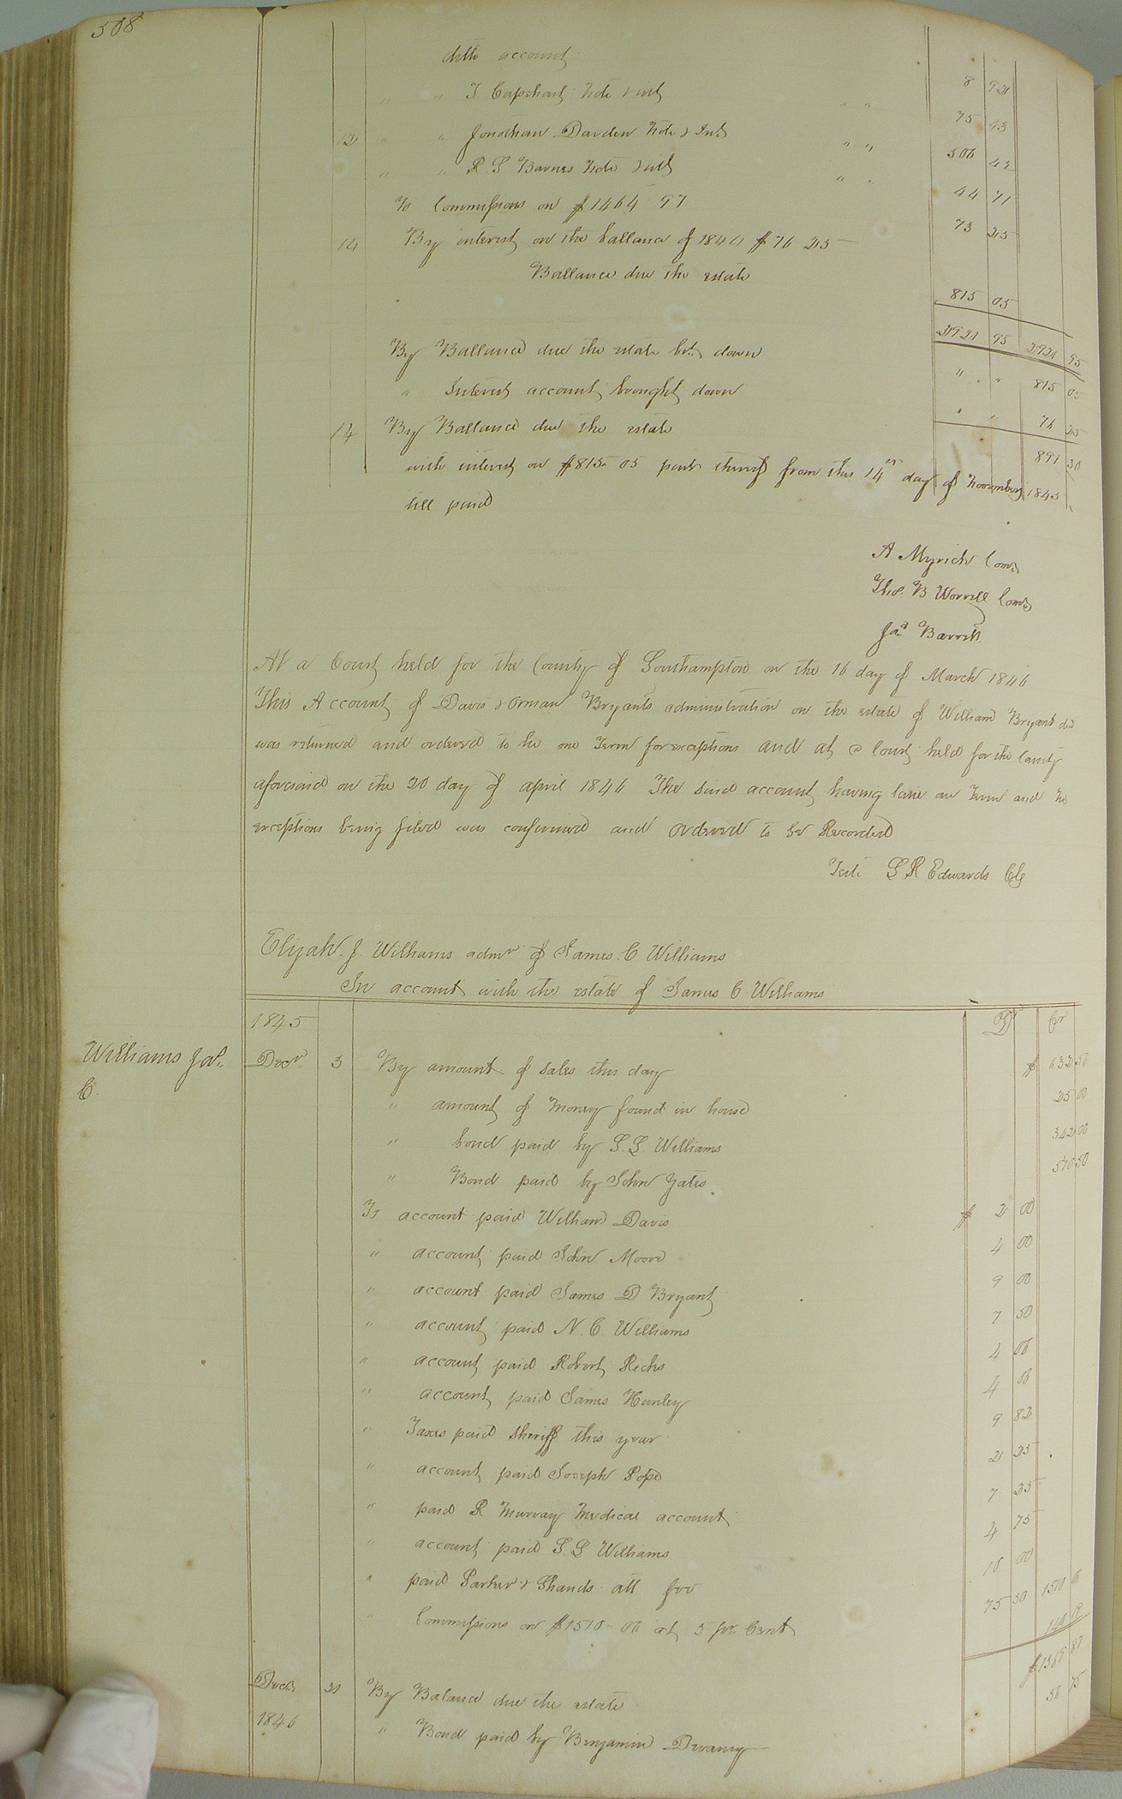 508
ditto account 8 921
" " T Capehart Note & int " " 75 43
12 " " Jonathan Darden Note & Int " " 506 42
" " R S Barnes Note & int " " 44 71
To Commissions on $1464 97 73 25
14 By interest on the ballance of 1844 $76 25
Ballance due the estate 815 05
2921 95 2921 95
By Ballance due the estate bt. down " " 815 05
" Interest account brought down " " 76 25
14 By Ballance due the estate 891 30
with interest on $815.05 part thereof from this 14th day of November 1845
till paid
A Myrick Comr
Thos. B Worrell Comr
Jas. Barrett
At a Court held for the County of Southampton on the 16 day of March 1846
This Account of Davis & Orman Bryants administration on the estate of William Bryant decd
was returned and ordered to lie one Term for exceptions and at a Court held for the County
aforesaid on the 20 day of april 1846 The said account having lain one Term and no
exceptions being filed was confirmed and ordered to be Recorded
Teste L R Edwards Clk
Elijah J. Williams admr of James C Williams
In account with the estate of James C. Williams
1845 Dr Cr
Williams Jas.
C.
Decr 3 By amount of sales this day $ 632 50
" amount of Money found in house 25 00
" bond paid by L. L Williams 342 00
" Bond paid by John Yates 510 50
To account paid William Davis $ 2 00
" account paid John Moore 4 00
" account paid James D Bryant 9 00
" account paid N. C. Williams 7 50
" account paid Robert Ricks 4 06
" account paid James Hunley 4 06
" Taxes paid Sheriff this year 9 82
" account paid Joseph Pope 2 25
" paid R Murray Medical account 7 25
" account paid L L Williams 4 75
" paid Parker & Shands att fee 10 00
" Commissions on $1510-00 at 5 pr. Cent 75 50 1510 0
Decr 31 By Balance due the estate $1368 81
1846 " Bond paid by Benjamin Devany 58 75